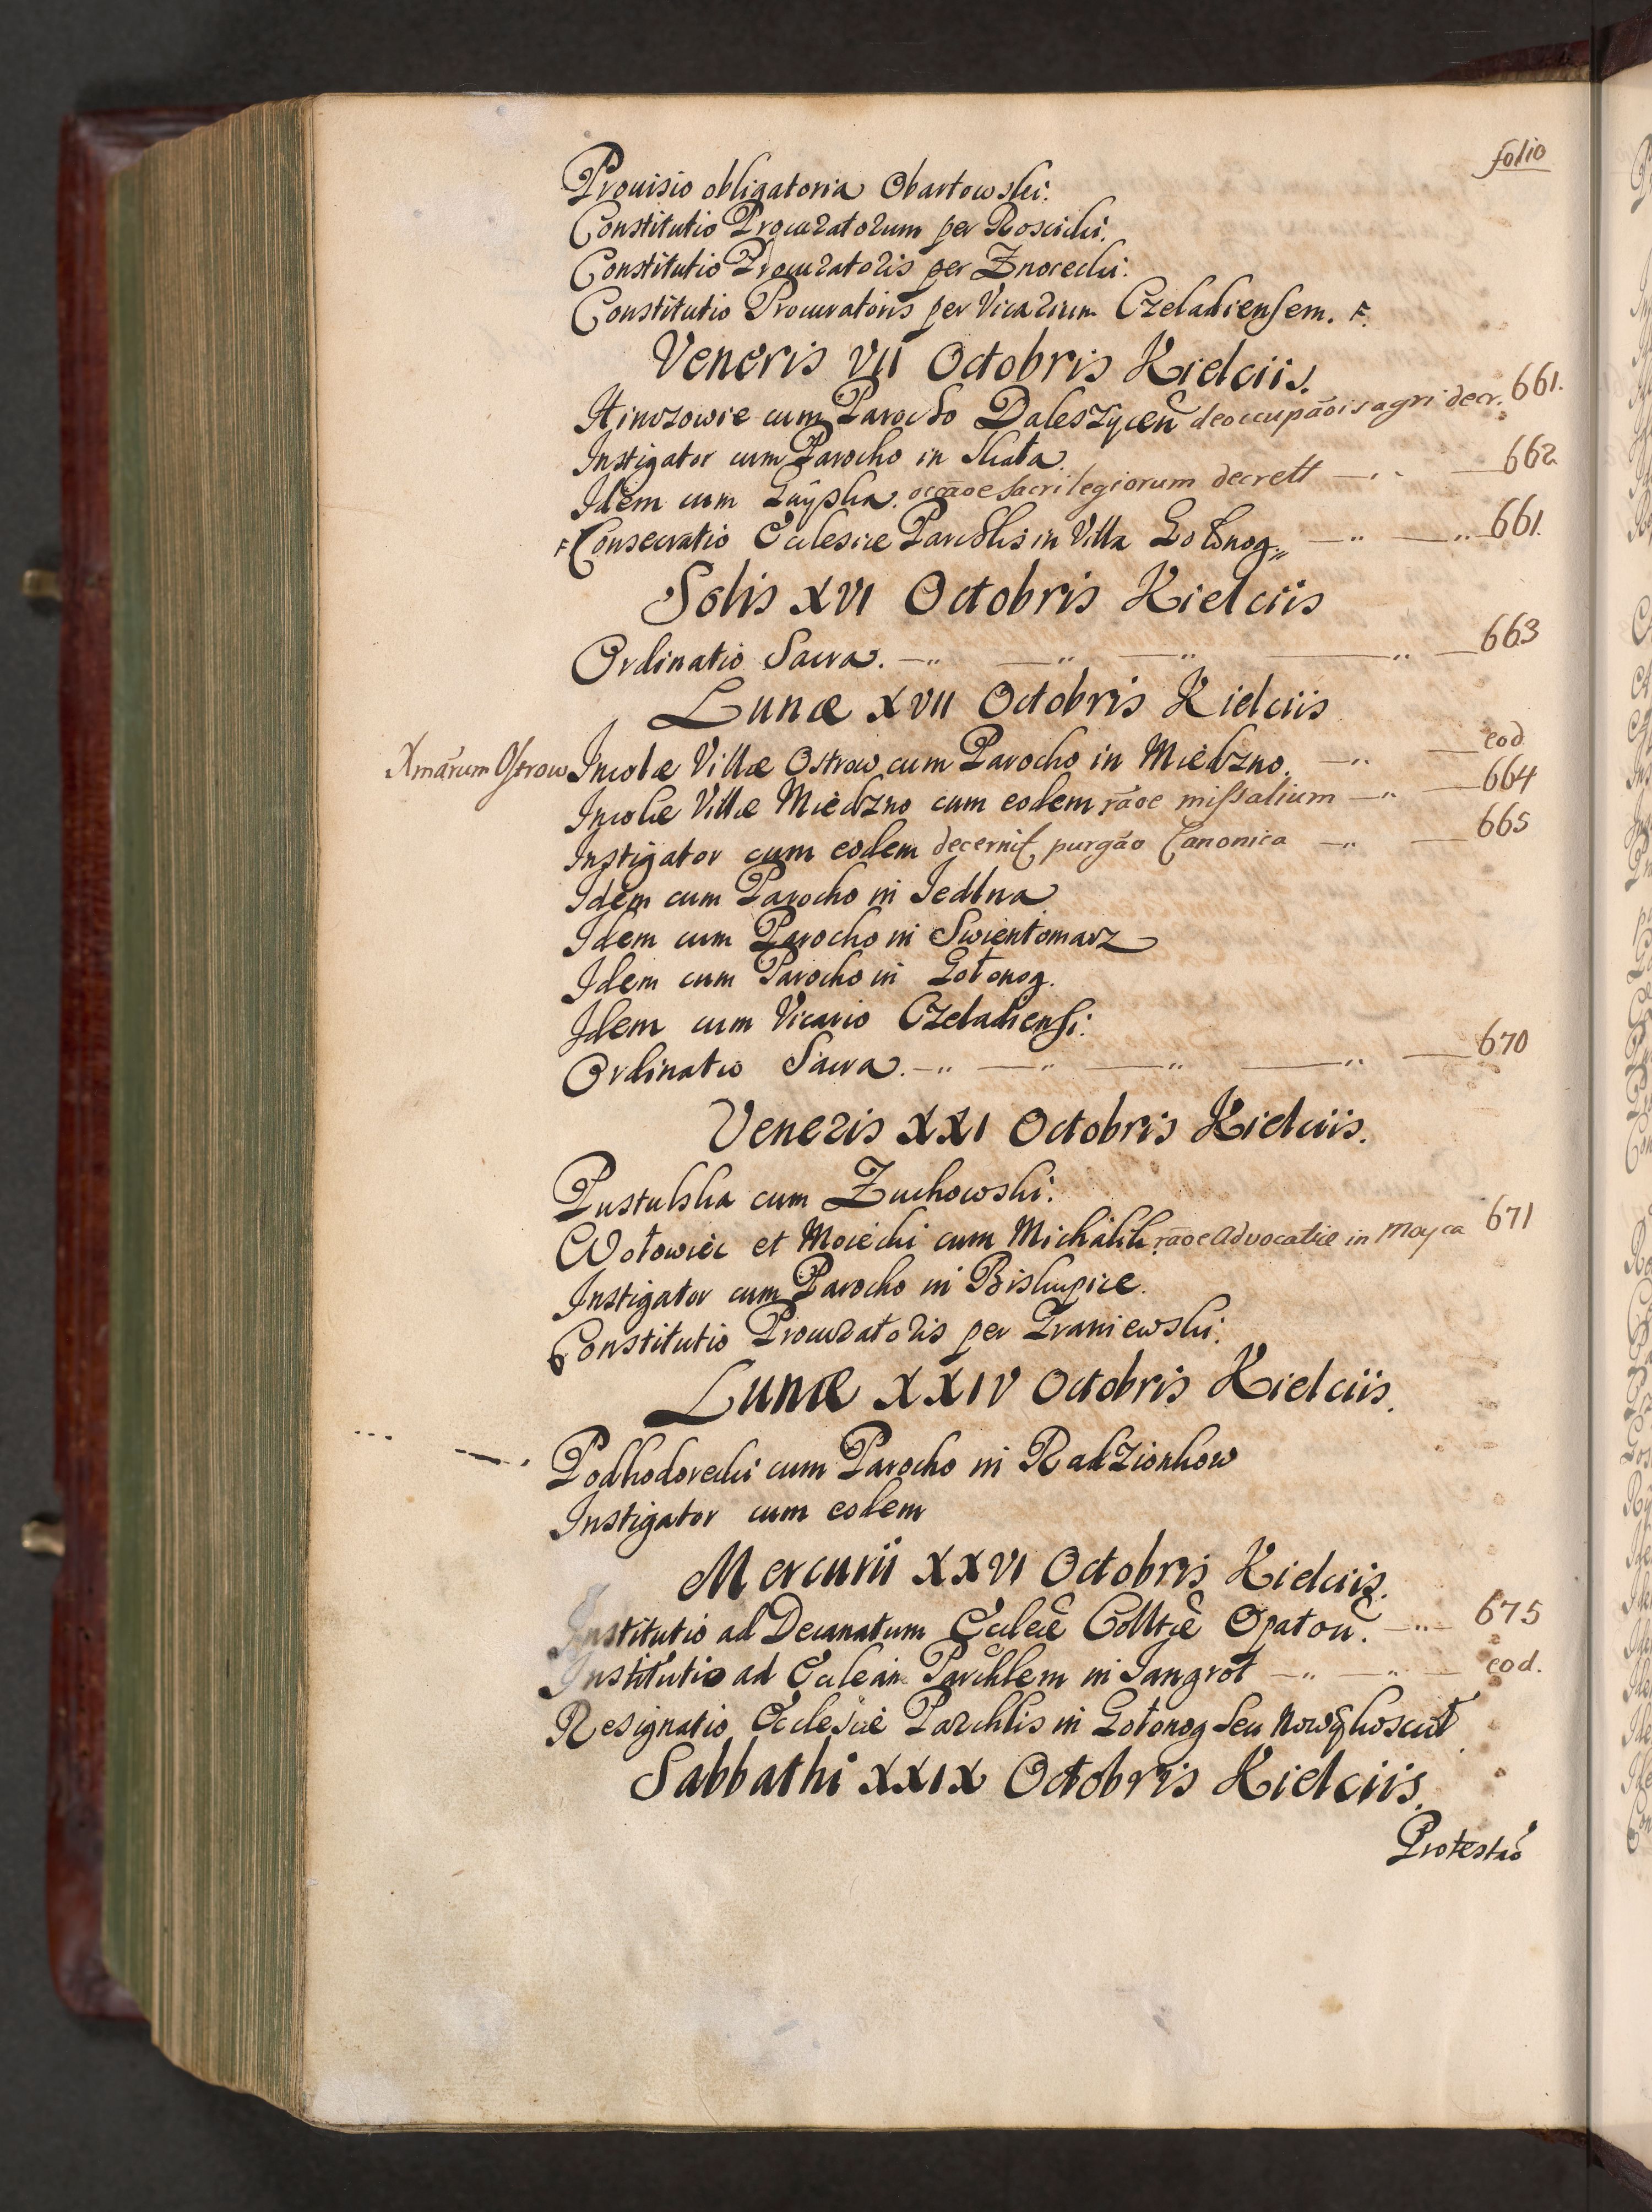 folio
Prouisio obligatoria Obartowski.
Constitutio Procuratorum per Roscicki.
Constitutio Procuratoris per
Constitutio Procuratoris per Vicarium Czeladiensem. F.
Veneris VII Octobris Kielciis.
cum Parocho Daleszyceń de occupaõis agri decr. 661.
Instigator cum Parocho in Skała.
Idem cum occãoe sacrilegiorum decrett 662
F Consecratio Ecclesiæ Parchlis in Villa Gołonog 661.
Solis XVI Octobris Kielciis
Ordinatio Sacra. 663
Lunæ XVII Octobris Kielciis
Xmãrum Ostrow Incolæ Villæ Ostrow cum Parocho in Miedzno. eod
Incolæ Villæ Miedzno cum eodem rãoe missalium 664
Instigator cum eodem decernit purgão Canonica 665
Idem cum Parocho in Jedlna
Idem cum Parocho in Swientomarz
Idem cum Parocho in Gołonog.
Idem cum Vicario Czeladiensi.
Ordinatio Sacra. 670
Veneris XXI Octobris Kielciis.
Pustulska cum Zuchowski.
Wołowiec et Mociecki cum Michalik. rãoe Advocatiæ in Mayca 671
Instigator cum Parocho in Biskupice.
Constitutio Procuratoris per Graniewski.
Lunæ XXIV Octobris Kielciis.
Podhodorecki cum Parocho in Radzionkow
Instigator cum eodem
Mercurii XXVI Octobris Kielciis.
Institutio ad Decanatum Ecclæ Colltæ Opatoū. 675
Institutio ad Eccleām Parchlem in Jangrot eod.
Resignatio Ecclesiæ Parchlis in Gołonog seu
Sabbathi XXIX Octobris Kielciis.
Protestaõ